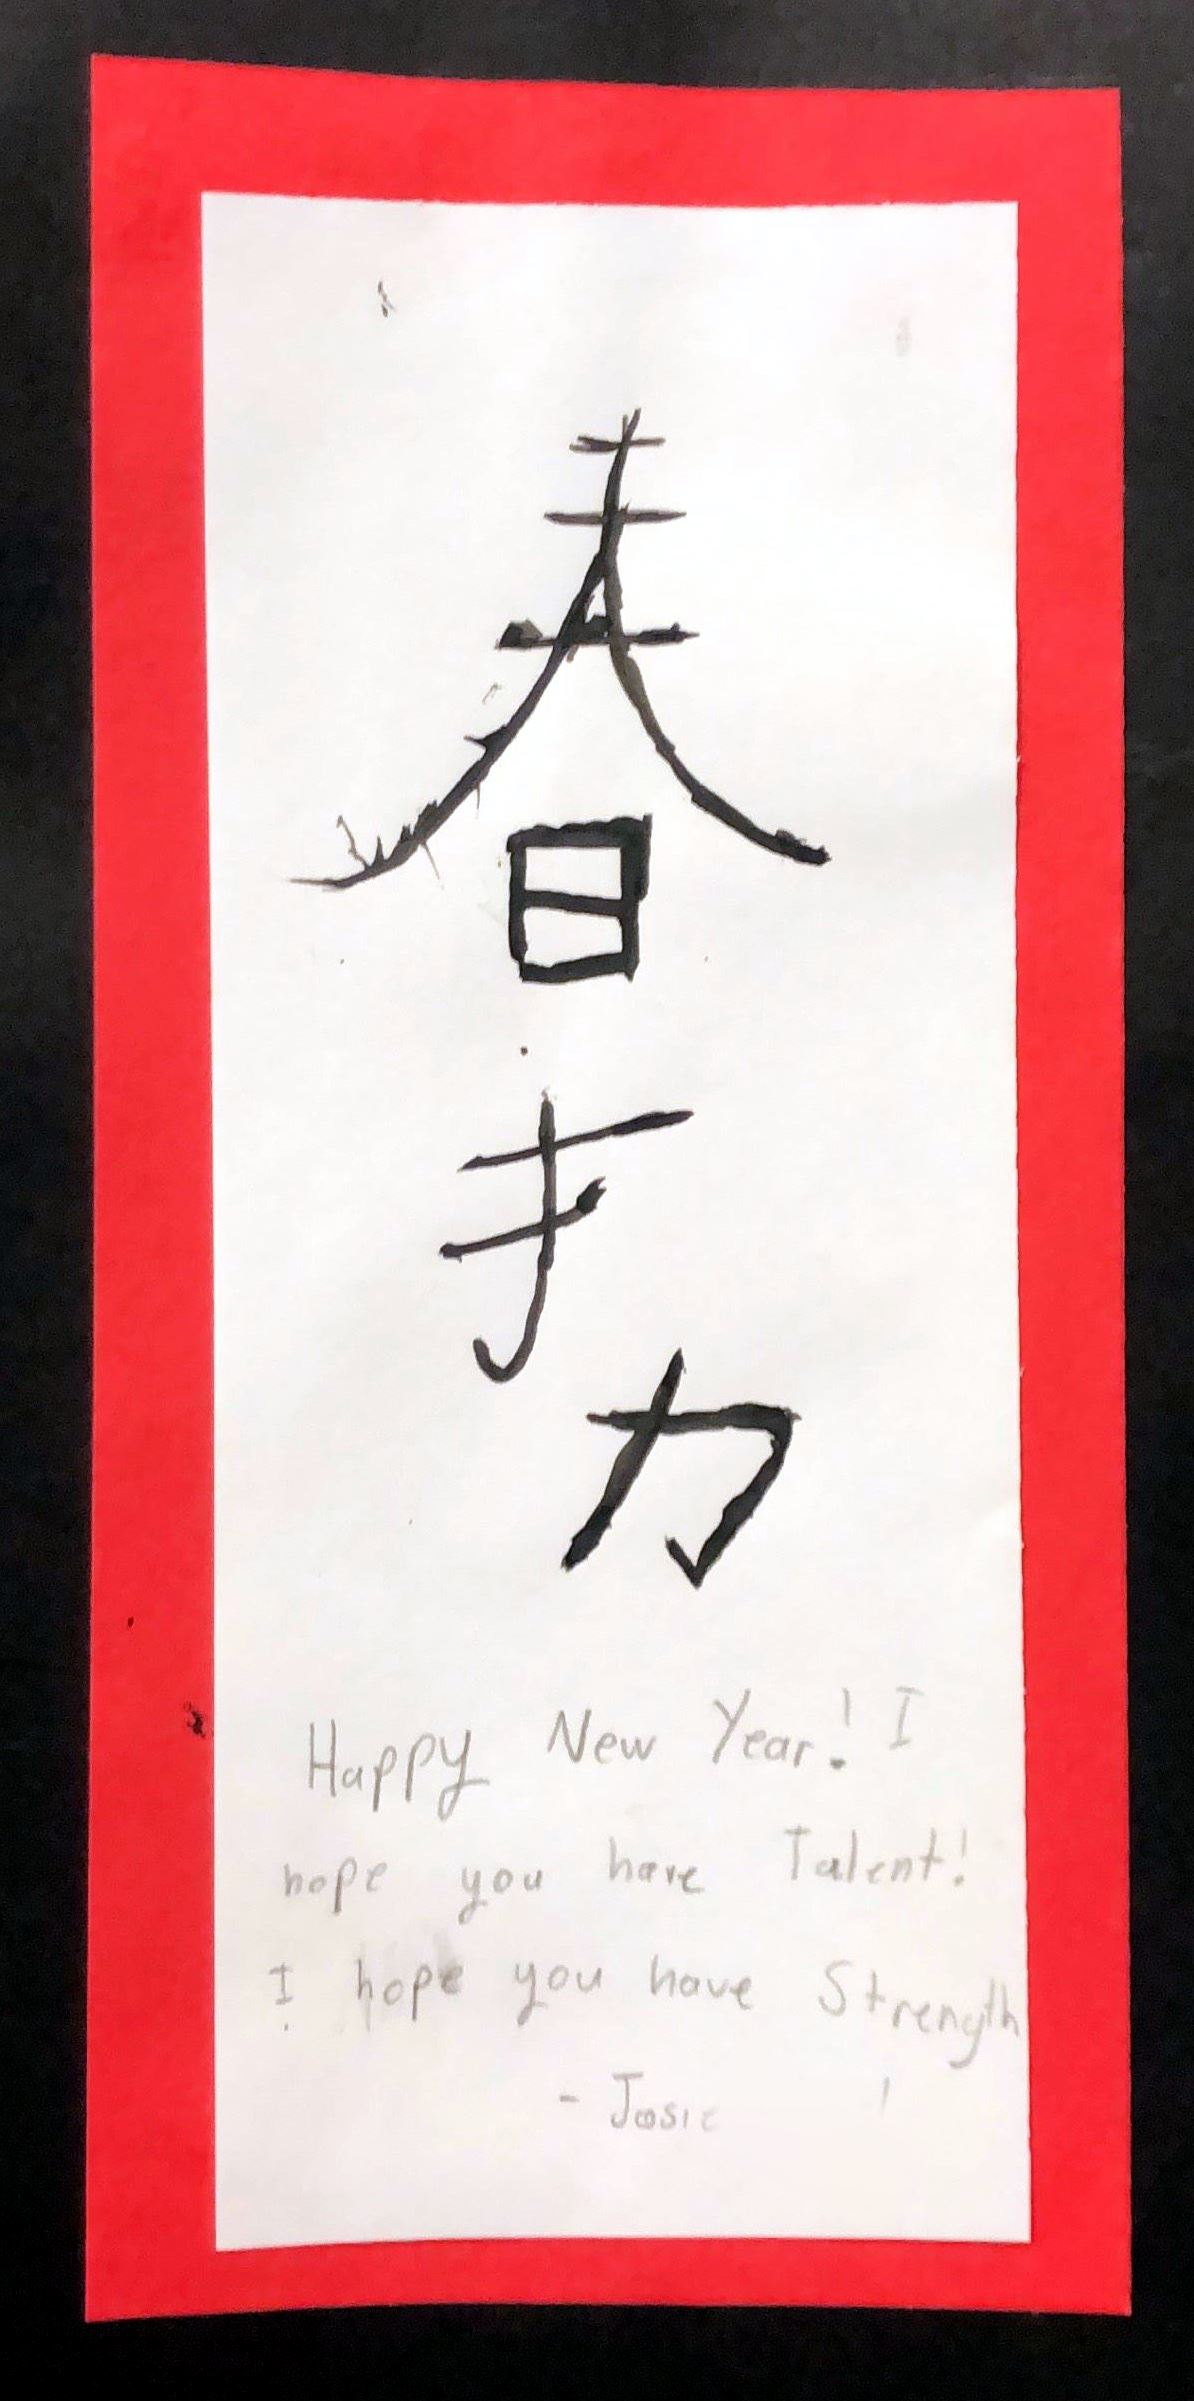 春
才
力
Happy New Year! I
hope you have Talent!
I hope you have Strength
- Josie !